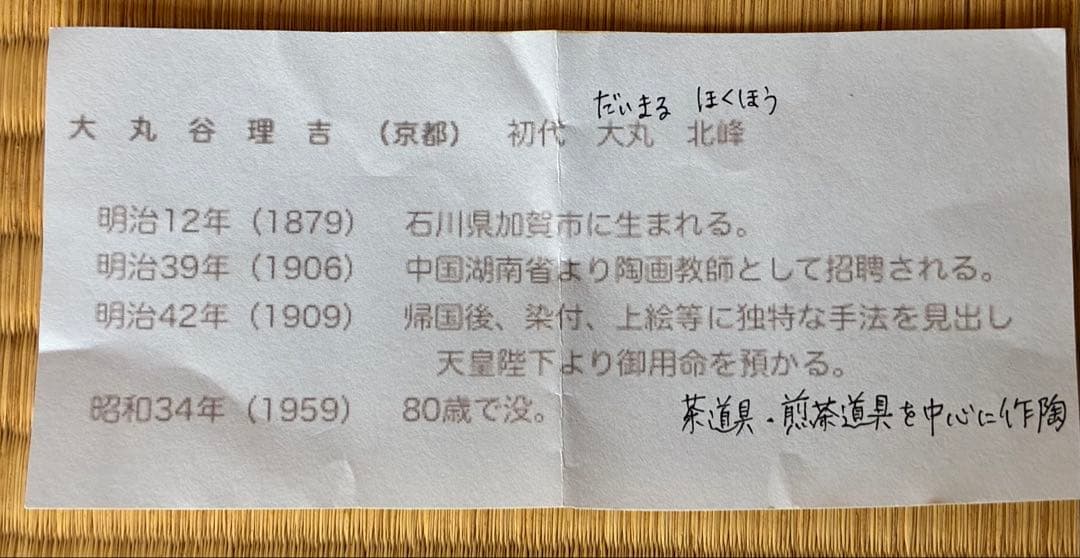 だいまる ほくほう
大丸谷理吉 （京都） 初代 大丸 北峰
明治12年（1879） 石川県加賀市に生まれる。
明治39年（1906） 中国湖南省より陶画教師として招聘される。
明治42年（1909） 帰国後、染付、上絵等に独特な手法を見出し
天皇陛下より御用命を預かる。
昭和34年（1959） 80歳で没。
茶道具・煎茶道具を中心に作陶